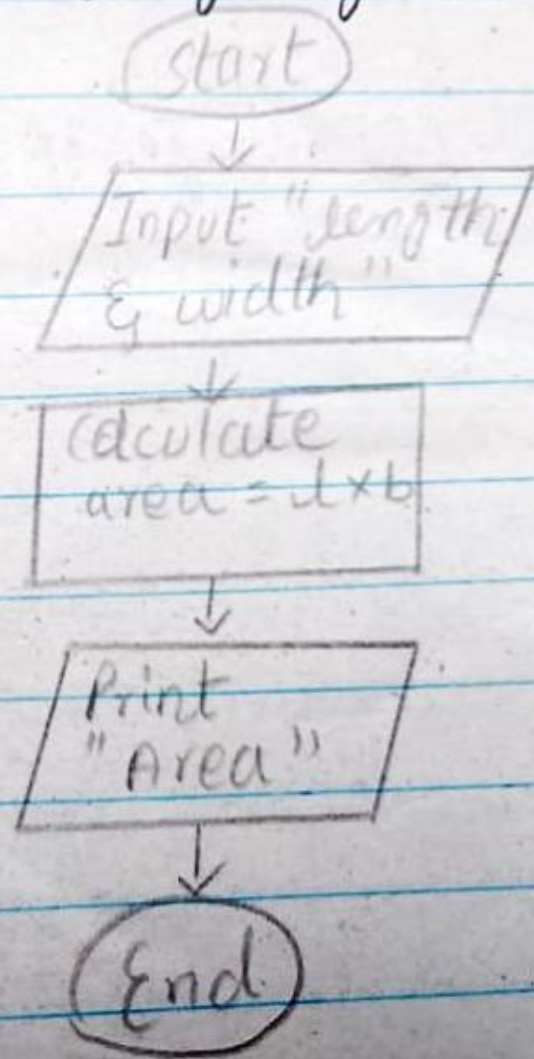 Start
Input "length
& width"
Calculate
area = l × b
Print
"Area"
End